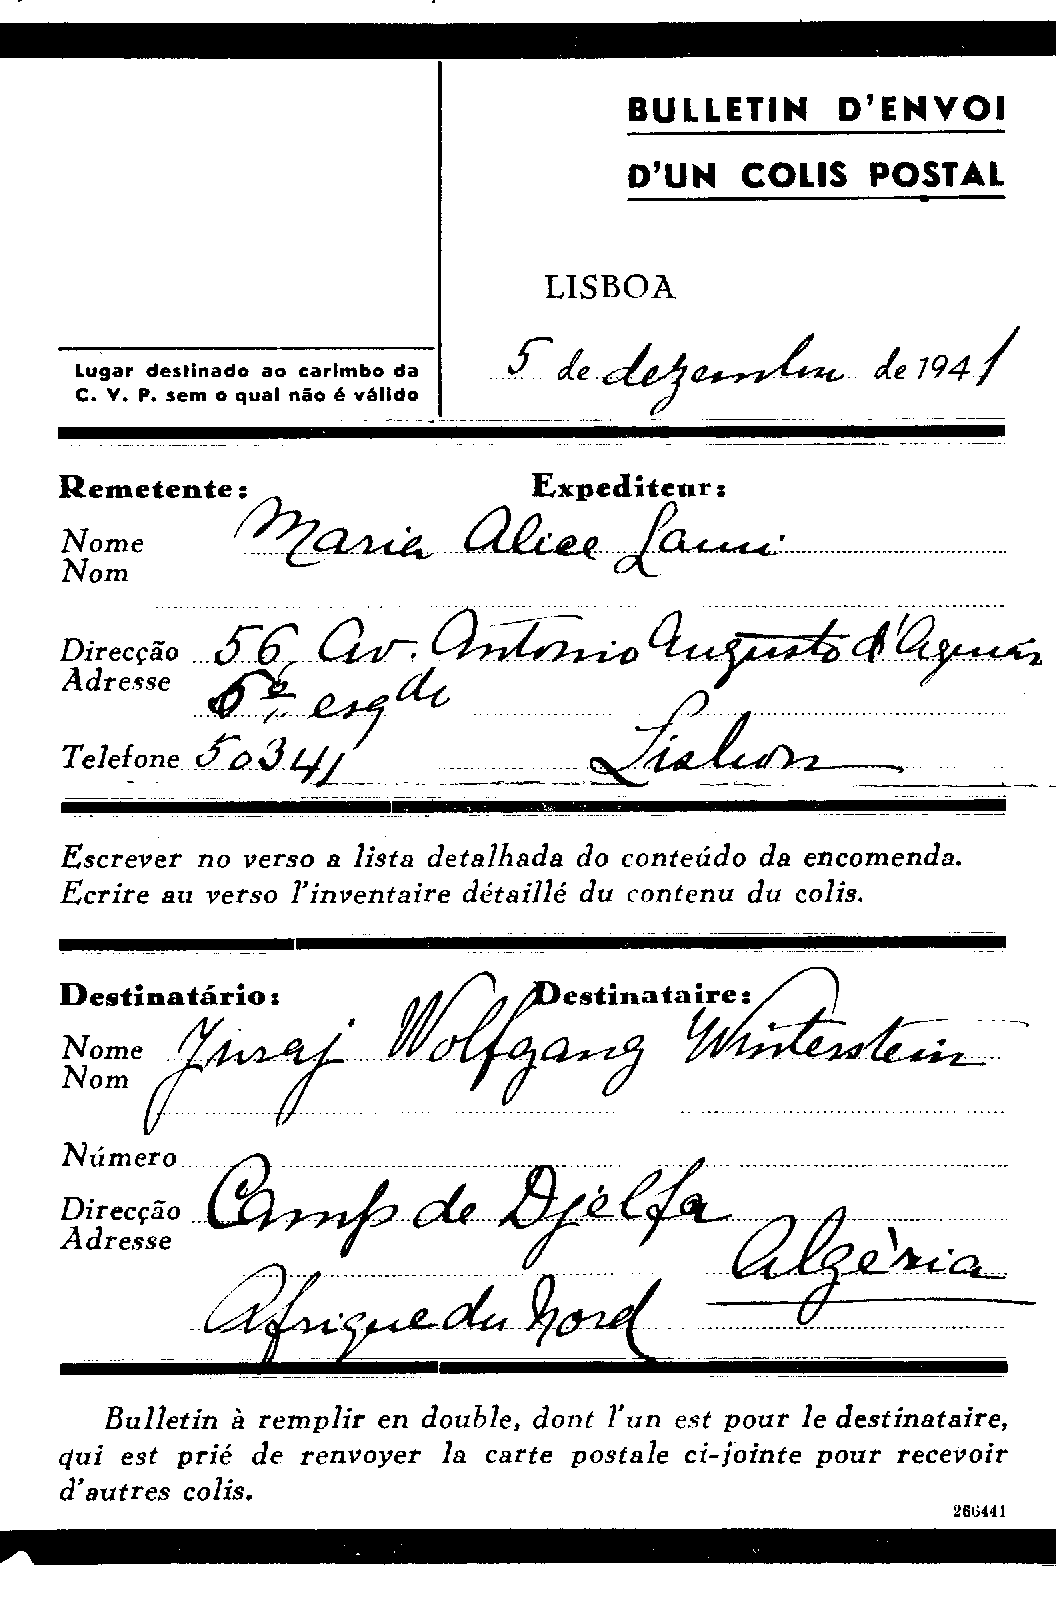 BULLETIN D'ENVOI
D'UN COLIS POSTAL
LISBOA
5 de dezembro de 1941
Lugar destinado ao carimbo da
C. V. P. sem o qual não é válido
Remetente: Expediteur:
Nome Maria Alice
Nom
Direcção 56, Av. Antonio Augusto d'Aguiar
Adresse
5º esqdo
Telefone 50341 Lisbon
Escrever no verso a lista detalhada do conteúdo da encomenda.
Ecrire au verso l'inventaire détaillé du contenu du colis.
Destinatário: Destinataire:
Nome Juraj Wolfgang Winterstein
Nom
Número
Direcção Camp de Djelfa
Adresse
Algéria
Afrique du Nord
Bulletin à remplir en double, dont l'un est pour le destinataire,
qui est prié de renvoyer la carte postale ci-jointe pour recevoir
d'autres colis.
266441